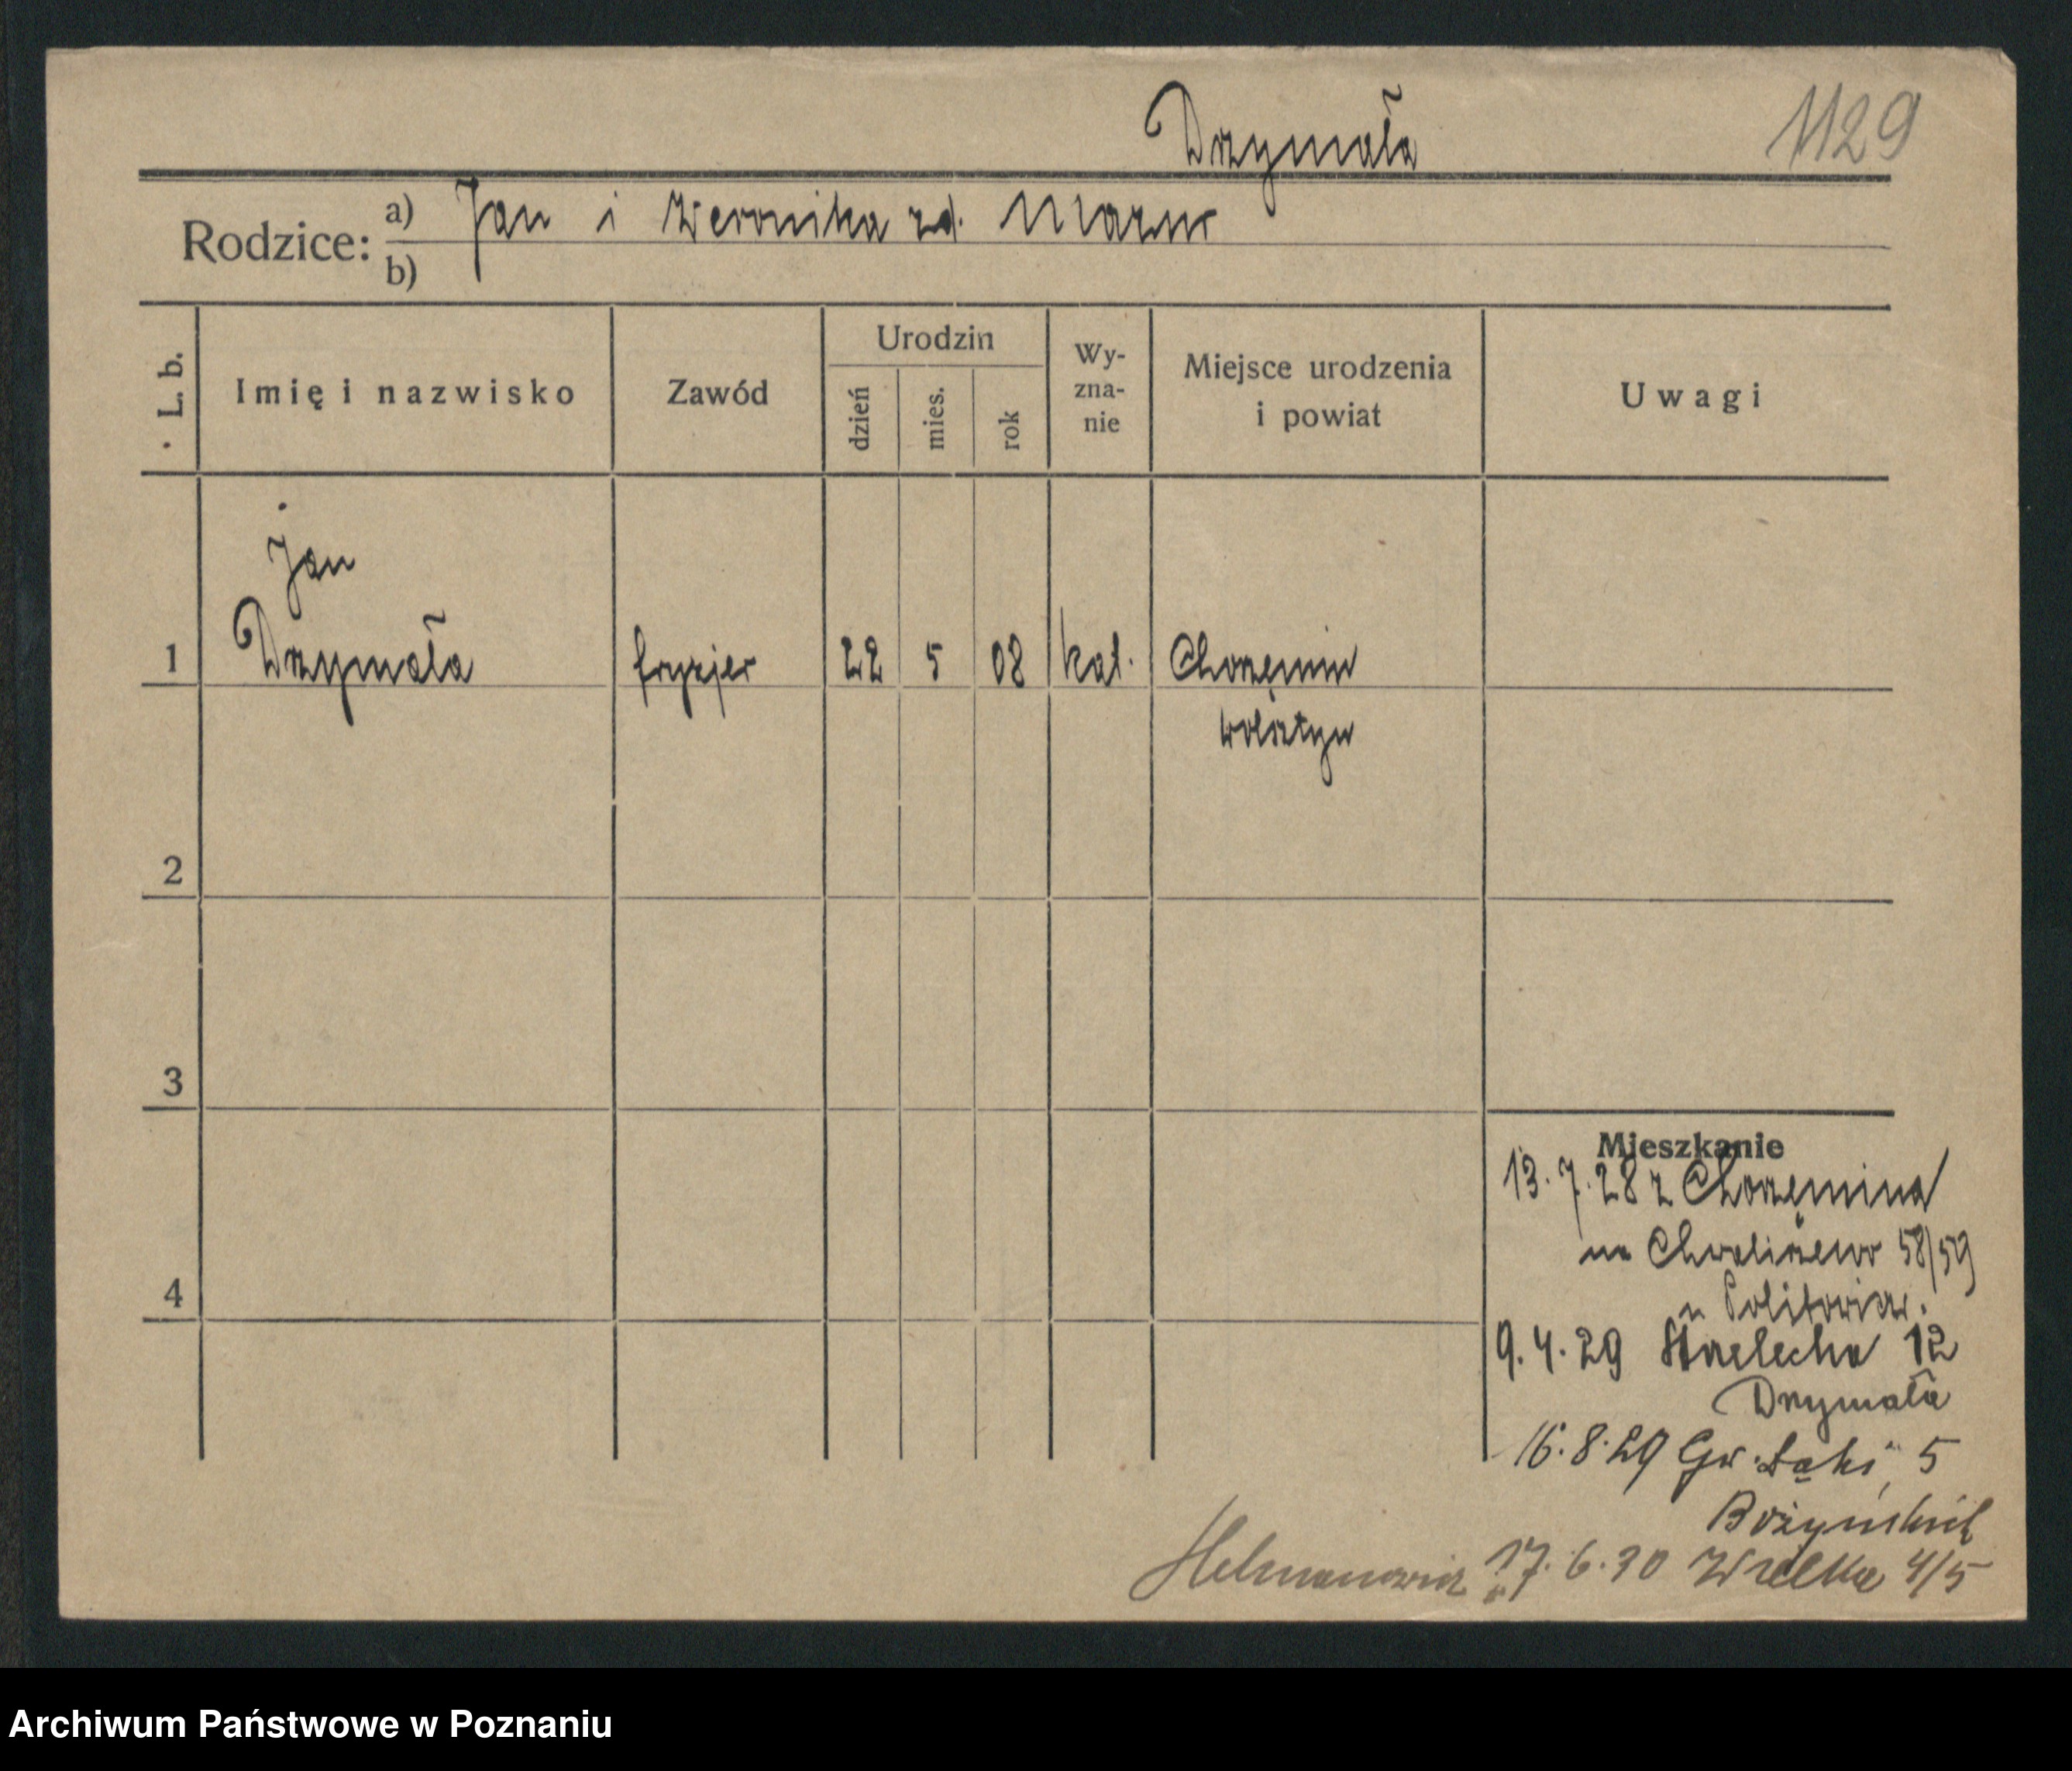 Drzymała
1129
Rodzice: a) Jan i Weronika zd. Mazur
b)
L. b.
Imię i nazwisko
Zawód
Urodzin
dzień
mies.
rok
Wy-
zna-
nie
Miejsce urodzenia
i powiat
Uwagi
Jan
1 Drzymała fryzjer 22 5 08 kat. Chorzęmin
Wolsztyn
2
3
4
Mieszkanie
13.7.28 z Chorzęmina
na Chwaliszewo 58/59
9.4.29 Strzelecka 12
Drzymała
16.8.29 Gr. Łąki 5
17.6.30 Wielka 4/5
Archiwum Państwowe w Poznaniu